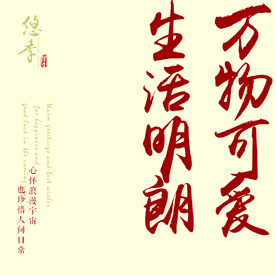 万物可爱
生活明朗
悠李
Warm greetings and best wishes
for happiness and
good luck in the coming
心怀浪漫宇宙
也珍惜人间日常